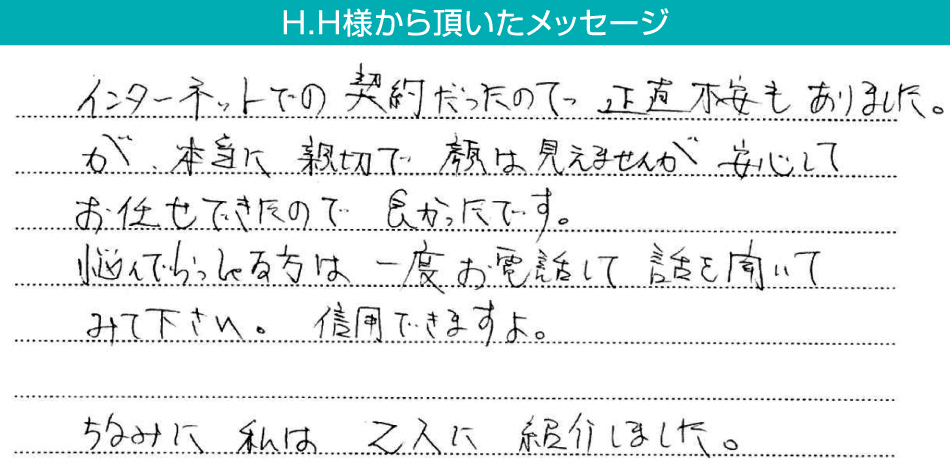 H.H様から頂いたメッセージ
インターネットでの契約だったので正直不安もありました。
が、本当に親切で顔は見えませんが安心して
お任せできたので良かったです。
悩んでらっしゃる方は一度お電話して話を聞いて
みて下さい。信用できますよ。
ちなみに私は2人に紹介しました。